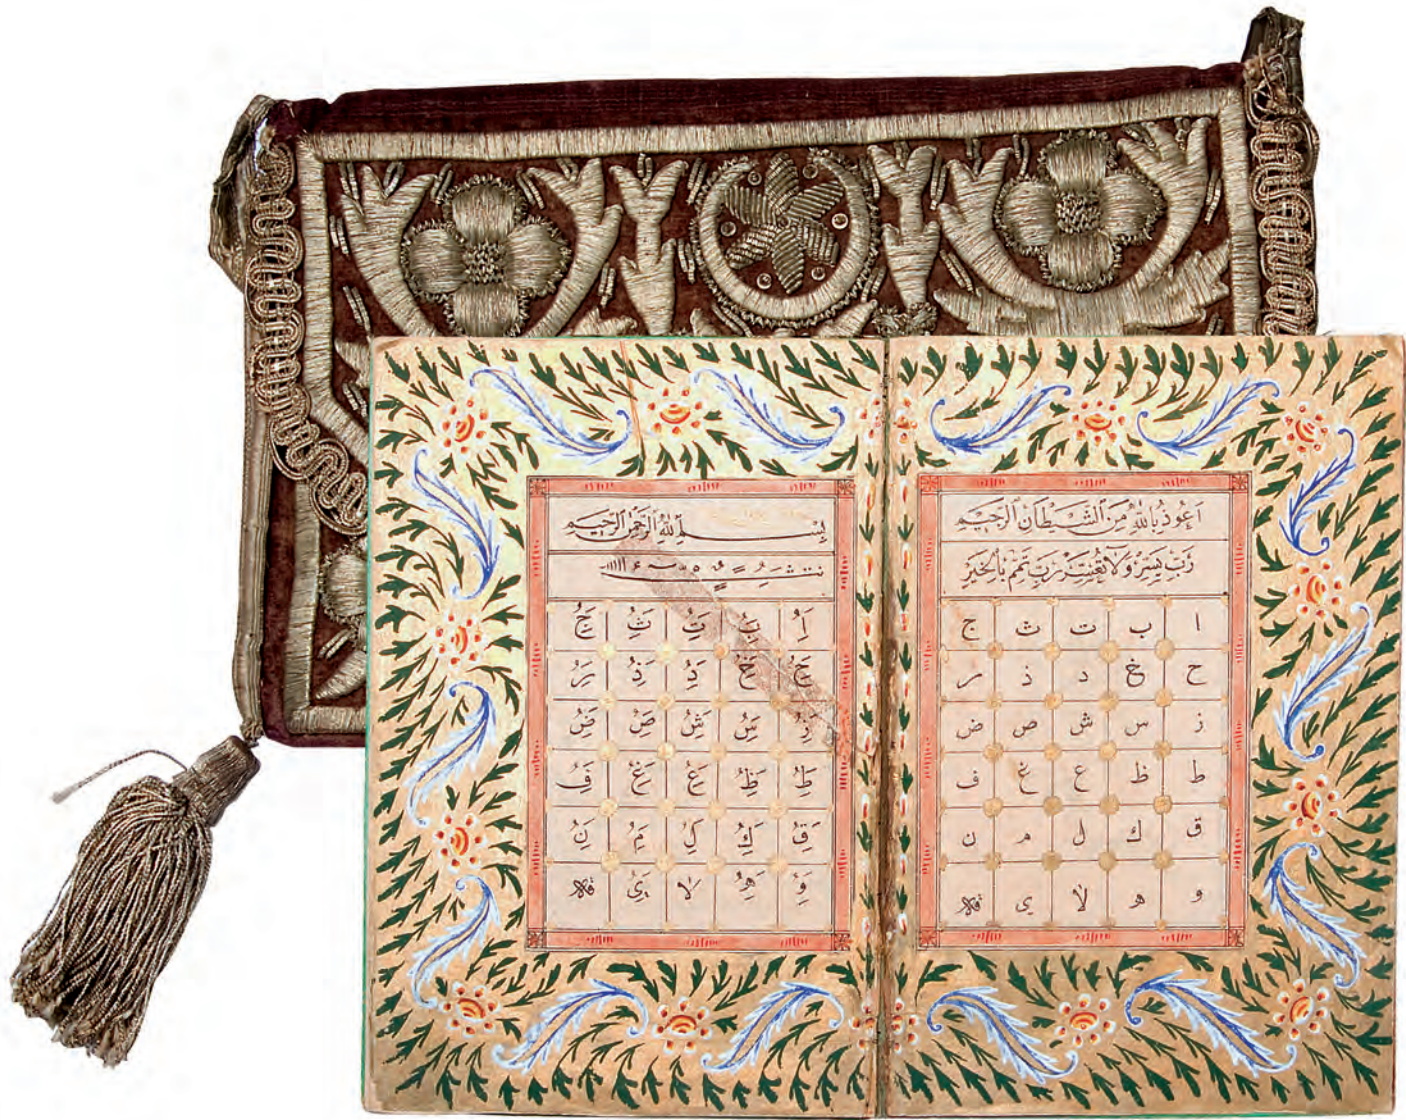 اَعُوذُ بِاللّٰهِ مِنَ الشَّيْطَانِ الرَّجِيمِ
رَبِّ يَسِّرْ وَلَا تُعَسِّرْ رَبِّ تَمِّمْ بِالْخَيْرِ
ا ب ت ث ج
ح خ د ذ ر
ز س ش ص ض
ط ظ ع غ ف
ق ك ل م ن
و ه لا ى
بِسْمِ اللّٰهِ الرَّحْمٰنِ الرَّحِيمِ
اَِبَُِ تَُِ ثَُِ جَُِ
حَُِ خَُِ دَُِ ذَُِ رَُِ
زَُِ سَُِ شَُِ صَُِ ضَُِ
طَُِ ظَُِ عَُِ غَُِ فَُِ
قَُِ كَُِ لَُِ مَُِ نَُِ
وَُِ هَُِ لا يَُِ